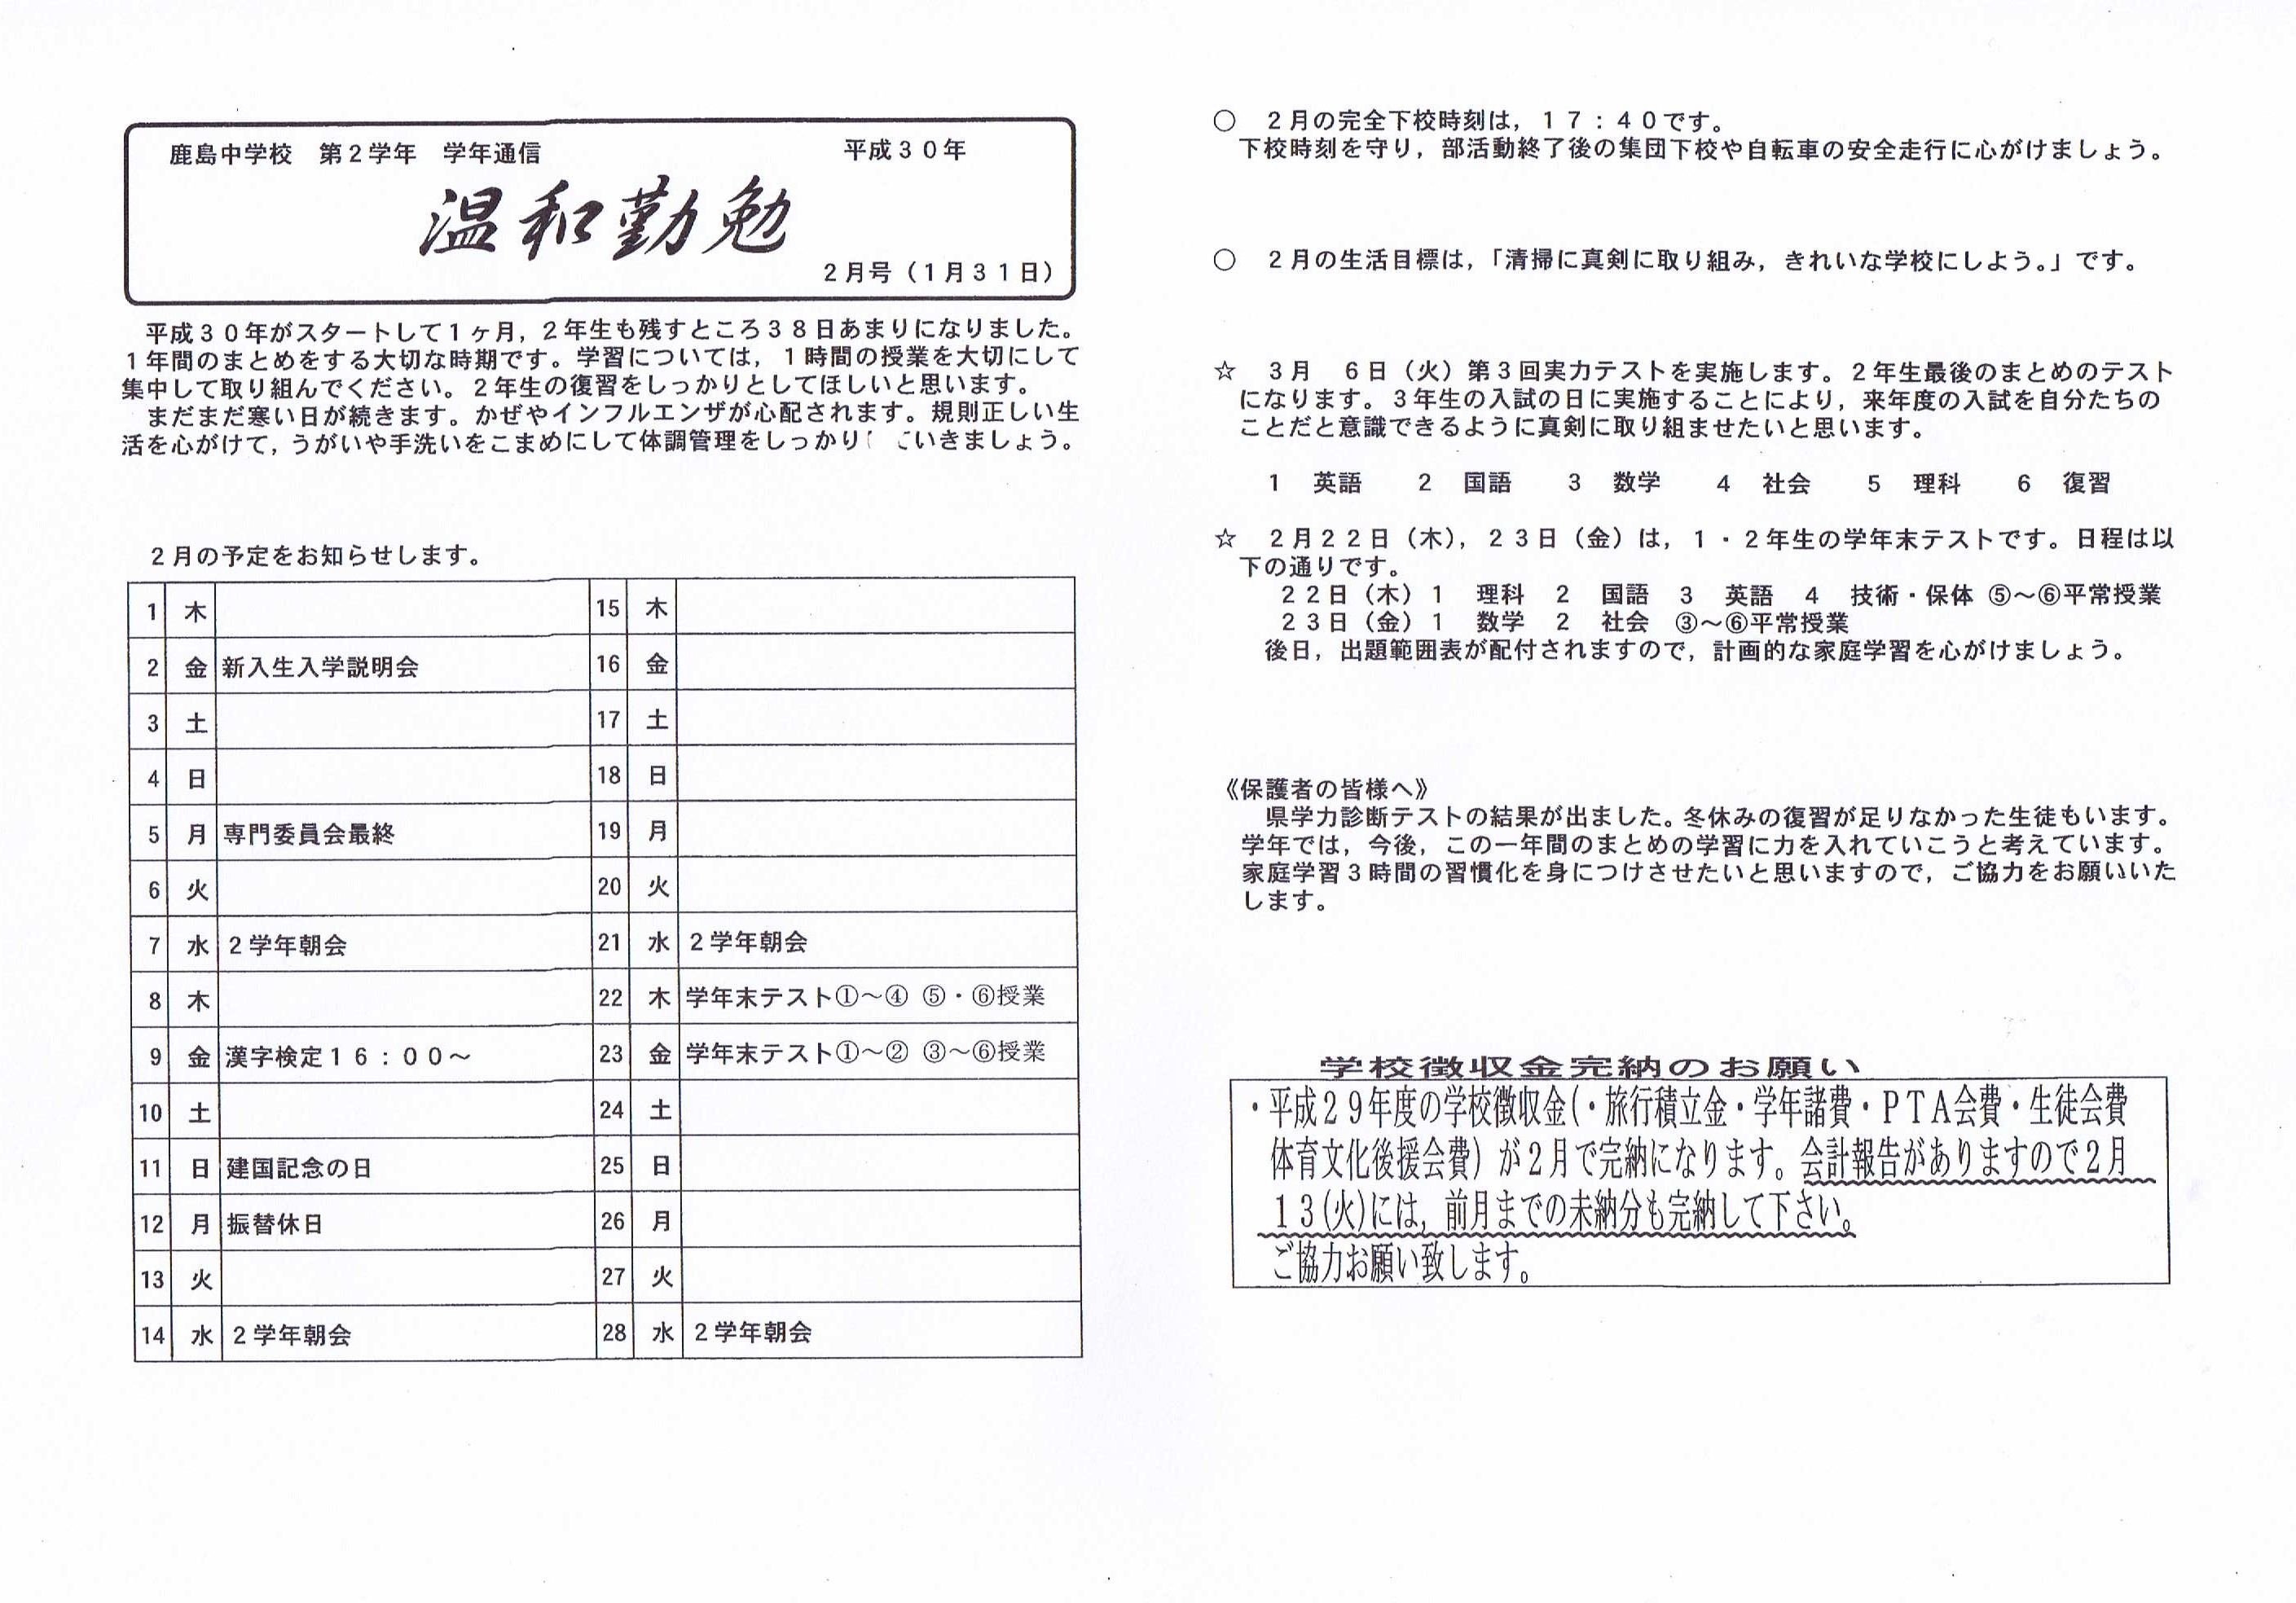 鹿島中学校　第２学年　学年通信　平成３０年
温和勤勉
２月号（１月３１日）
平成３０年がスタートして１ヶ月，２年生も残すところ３８日あまりになりました。
１年間のまとめをする大切な時期です。学習については，１時間の授業を大切にして
集中して取り組んでください。２年生の復習をしっかりとしてほしいと思います。
まだまだ寒い日が続きます。かぜやインフルエンザが心配されます。規則正しい生
活を心がけて，うがいや手洗いをこまめにして体調管理をしっかり　ていきましょう。
２月の予定をお知らせします。
1 木
2 金 新入生入学説明会
3 土
4 日
5 月 専門委員会最終
6 火
7 水 ２学年朝会
8 木
9 金 漢字検定１６：００～
10 土
11 日 建国記念の日
12 月 振替休日
13 火
14 水 ２学年朝会
15 木
16 金
17 土
18 日
19 月
20 火
21 水 ２学年朝会
22 木 学年末テスト①～④ ⑤・⑥授業
23 金 学年末テスト①～② ③～⑥授業
24 土
25 日
26 月
27 火
28 水 ２学年朝会
○　２月の完全下校時刻は，１７：４０です。
下校時刻を守り，部活動終了後の集団下校や自転車の安全走行に心がけましょう。
○　２月の生活目標は，「清掃に真剣に取り組み，きれいな学校にしよう。」です。
☆　３月　６日（火）第３回実力テストを実施します。２年生最後のまとめのテスト
になります。３年生の入試の日に実施することにより，来年度の入試を自分たちの
ことだと意識できるように真剣に取り組ませたいと思います。
１　英語　２　国語　３　数学　４　社会　５　理科　６　復習
☆　２月２２日（木），２３日（金）は，１・２年生の学年末テストです。日程は以
下の通りです。
２２日（木）１　理科　２　国語　３　英語　４　技術・保体 ⑤～⑥平常授業
２３日（金）１　数学　２　社会　③～⑥平常授業
後日，出題範囲表が配付されますので，計画的な家庭学習を心がけましょう。
《保護者の皆様へ》
県学力診断テストの結果が出ました。冬休みの復習が足りなかった生徒もいます。
学年では，今後，この一年間のまとめの学習に力を入れていこうと考えています。
家庭学習３時間の習慣化を身につけさせたいと思いますので，ご協力をお願いいた
します。
学校徴収金完納のお願い
・平成２９年度の学校徴収金(・旅行積立金・学年諸費・ＰＴＡ会費・生徒会費
体育文化後援会費）が２月で完納になります。会計報告がありますので２月
１３(火)には，前月までの未納分も完納して下さい。
ご協力お願い致します。